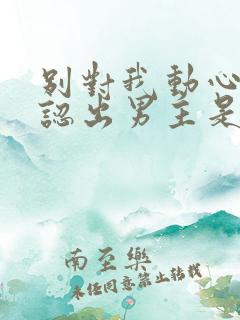 別對我動心
認出男主是
南至樂
未經同意禁止轉載